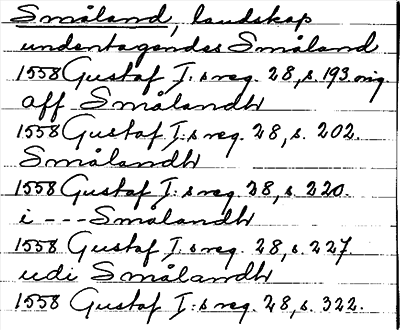 Småland, landskap
undentagendes Småland
1558 Gustaf I:s reg. 28, s. 193 orig
aff Smålandh
1558 Gustaf I:s reg. 28, s. 202.
Smålandh
1558 Gustaf I:s reg. 28, s. 220.
i --- Smålandh
1558 Gustaf I:s reg. 28, s. 227.
udi Smålandh
1558 Gustaf I:s reg. 28, s. 322.